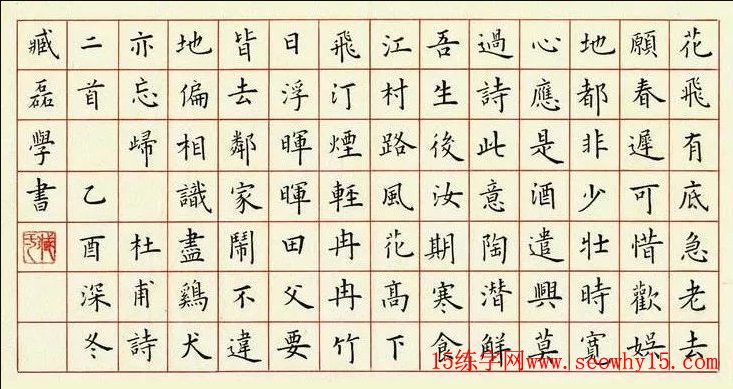 花飛有底急老去
願春遲可惜歡娛
地都非少壯時寬
心應是酒遣興莫
過詩此意陶潛觧
吾生後汝期寒食
江村路風花髙下
飛汀煙輕冉冉竹
日淨暉暉田父要
皆去鄰家鬧不違
地偏相識盡鷄犬
亦忘歸 杜甫詩
二首 乙酉深冬
臧磊學書
15练字网www.seowhy15.com